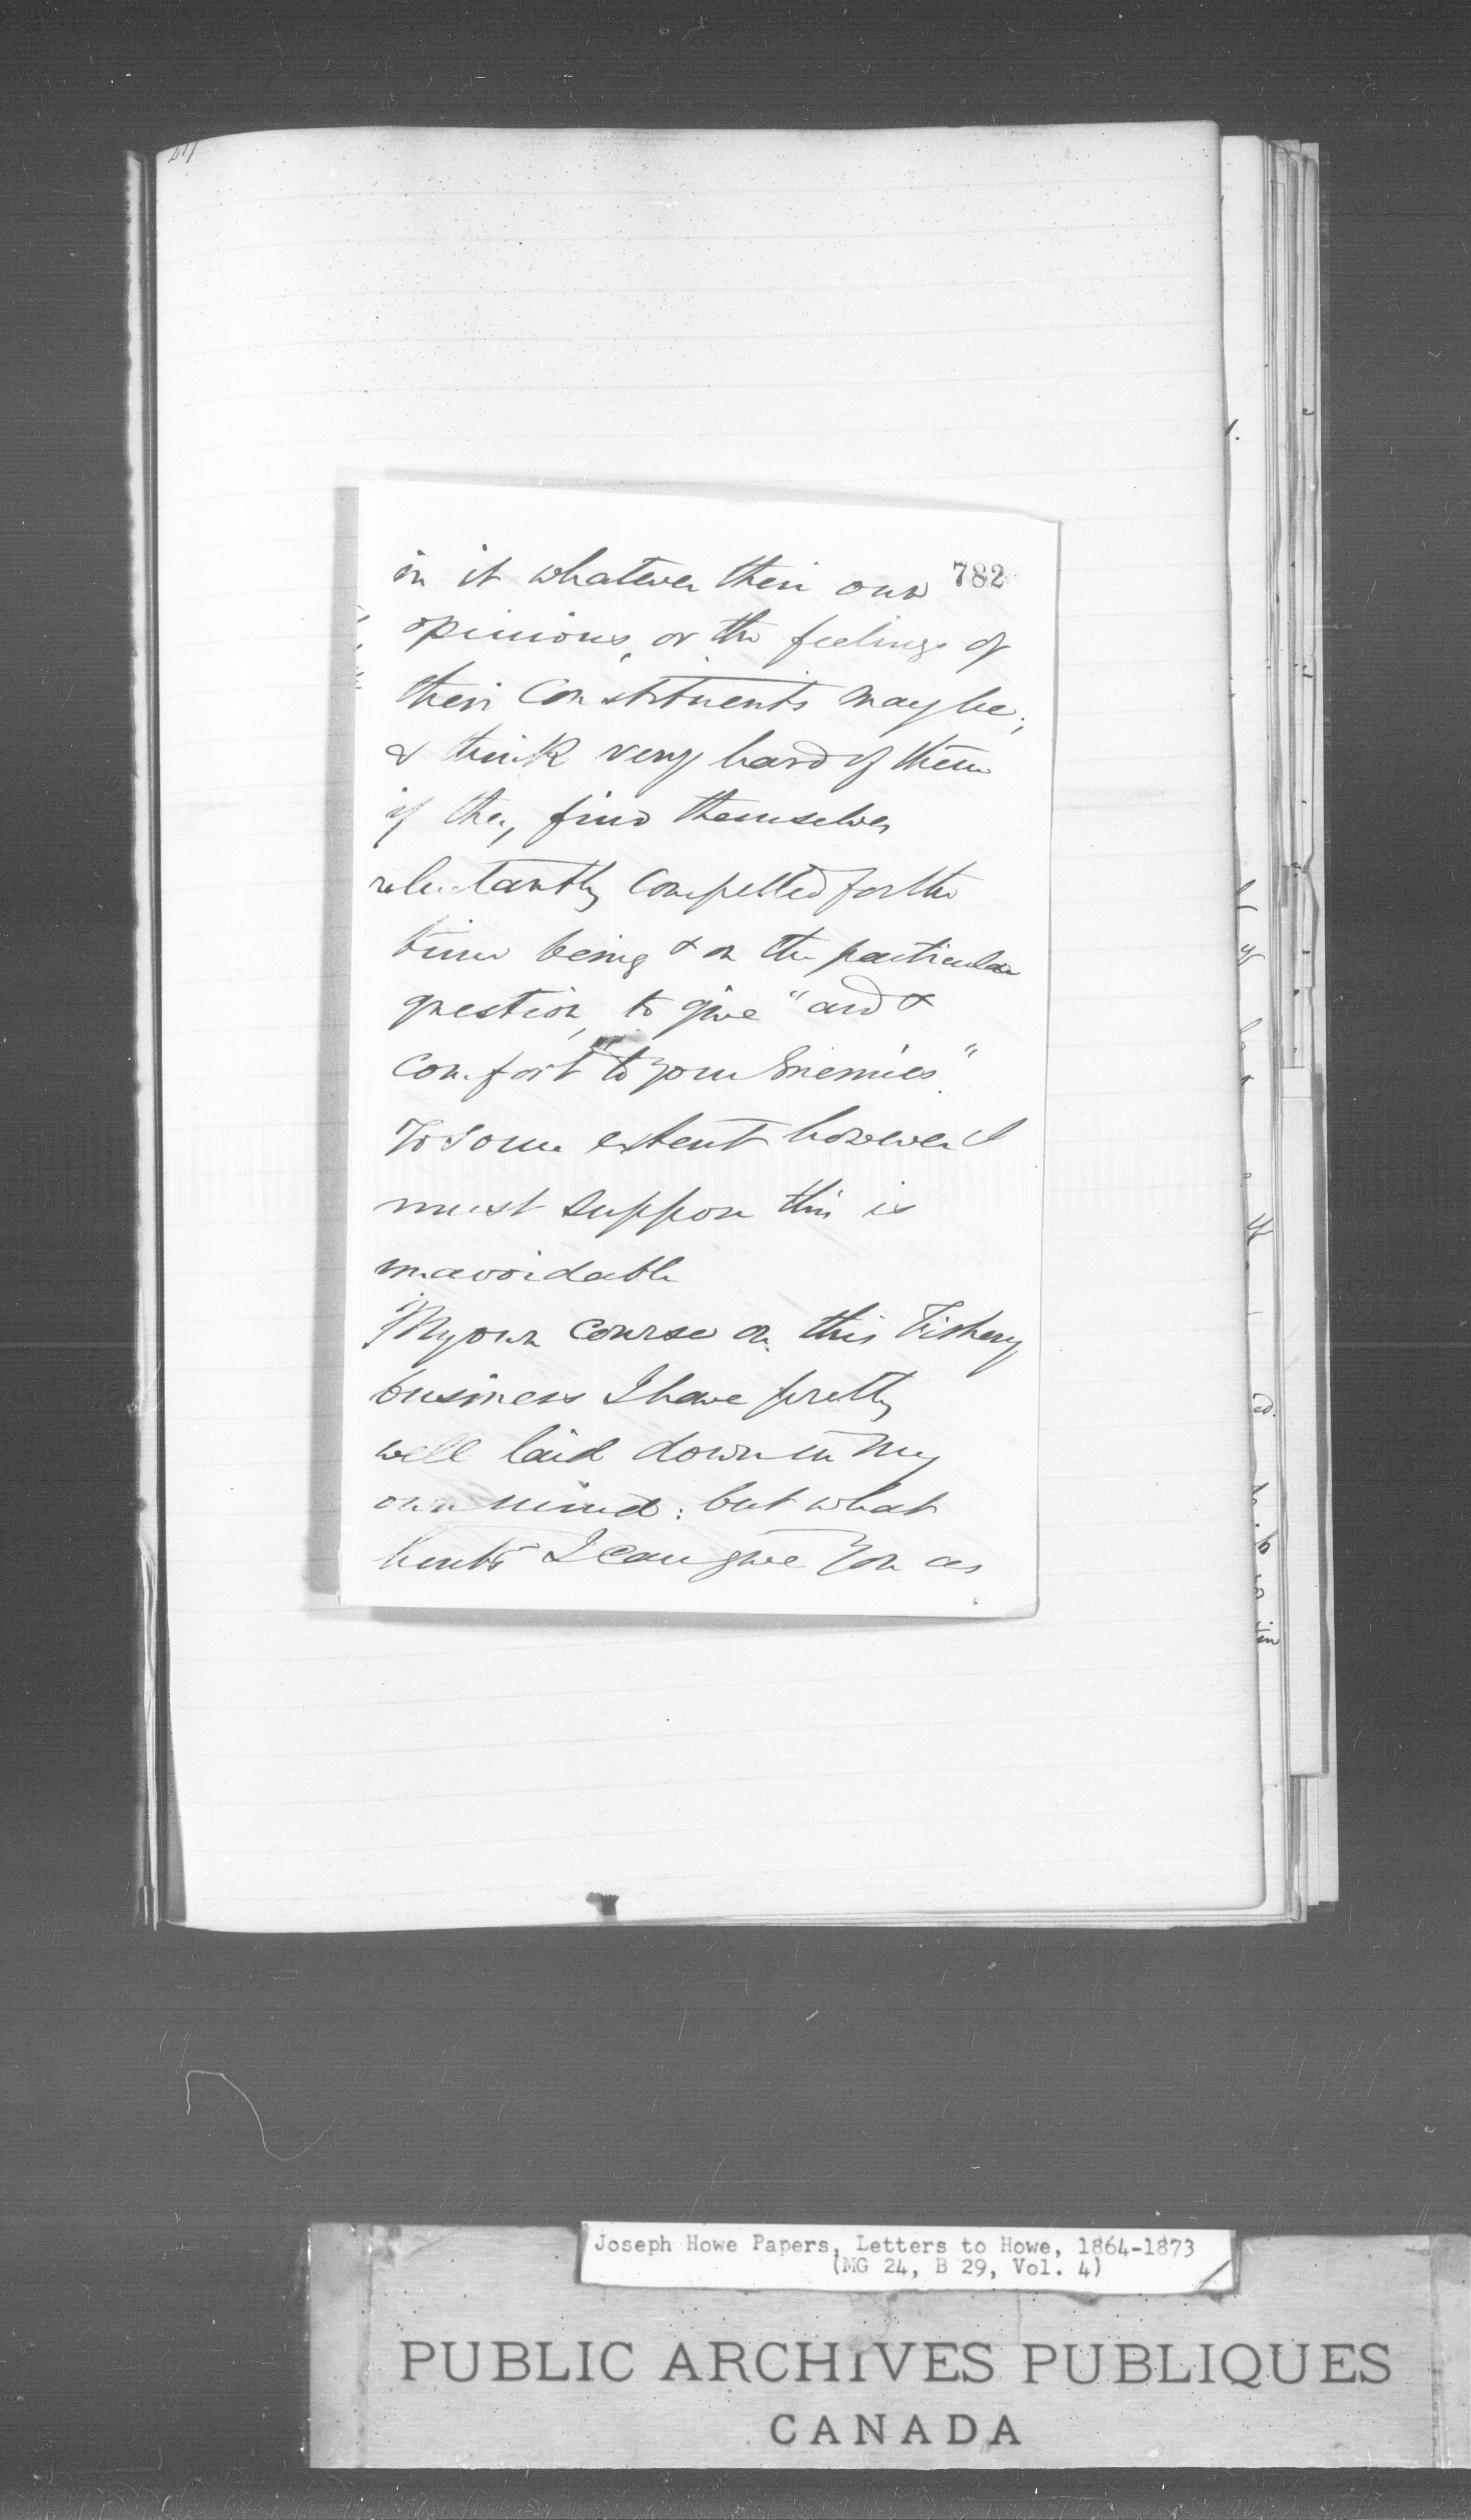 782
in it whatever their own
opinions, or the feelings of
their Constituents may be;
& think very hard of them
if they find themselves
reluctantly compelled for the
time being & on the particular
question, to give "aid &
comfort" to your Enemies".
To some extent however I
must suppose this is
unavoidable
My own course on this Fishery
business I have pretty
well laid down in my
own mind: but what
hints I can give you as
Joseph Howe Papers, Letters to Howe, 1864-1873
(MG 24, B 29, Vol. 4)
PUBLIC ARCHIVES PUBLIQUES
CANADA